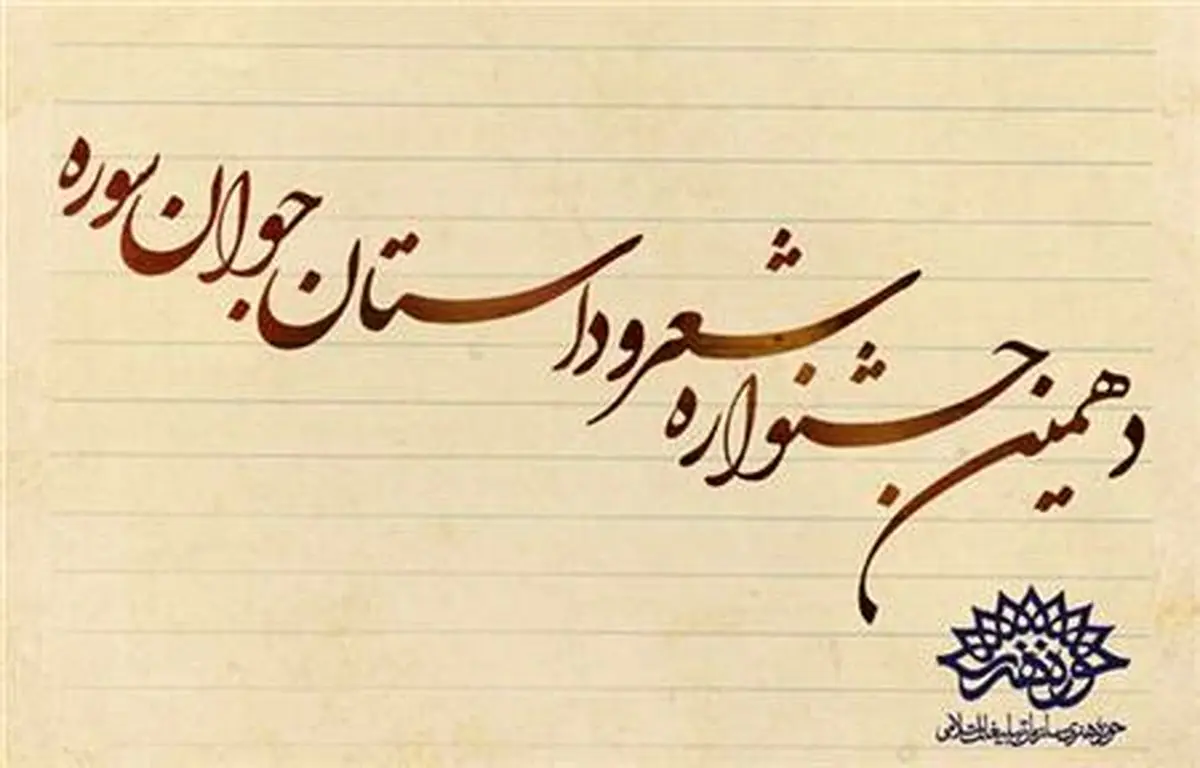 دهمین جشنواره شعر و داستان جوان سوره
حوزه هنری
حوزه هنری سازمان تبلیغات اسلامی